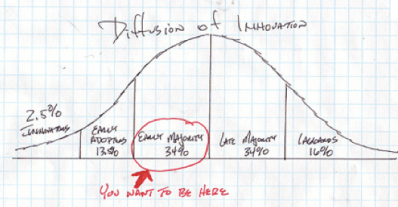 Diffusion of Innovation
2.5%
Innovators
Early
Adopters
13.5%
Early Majority
34%
Late Majority
34%
Laggards
16%
You want to be here